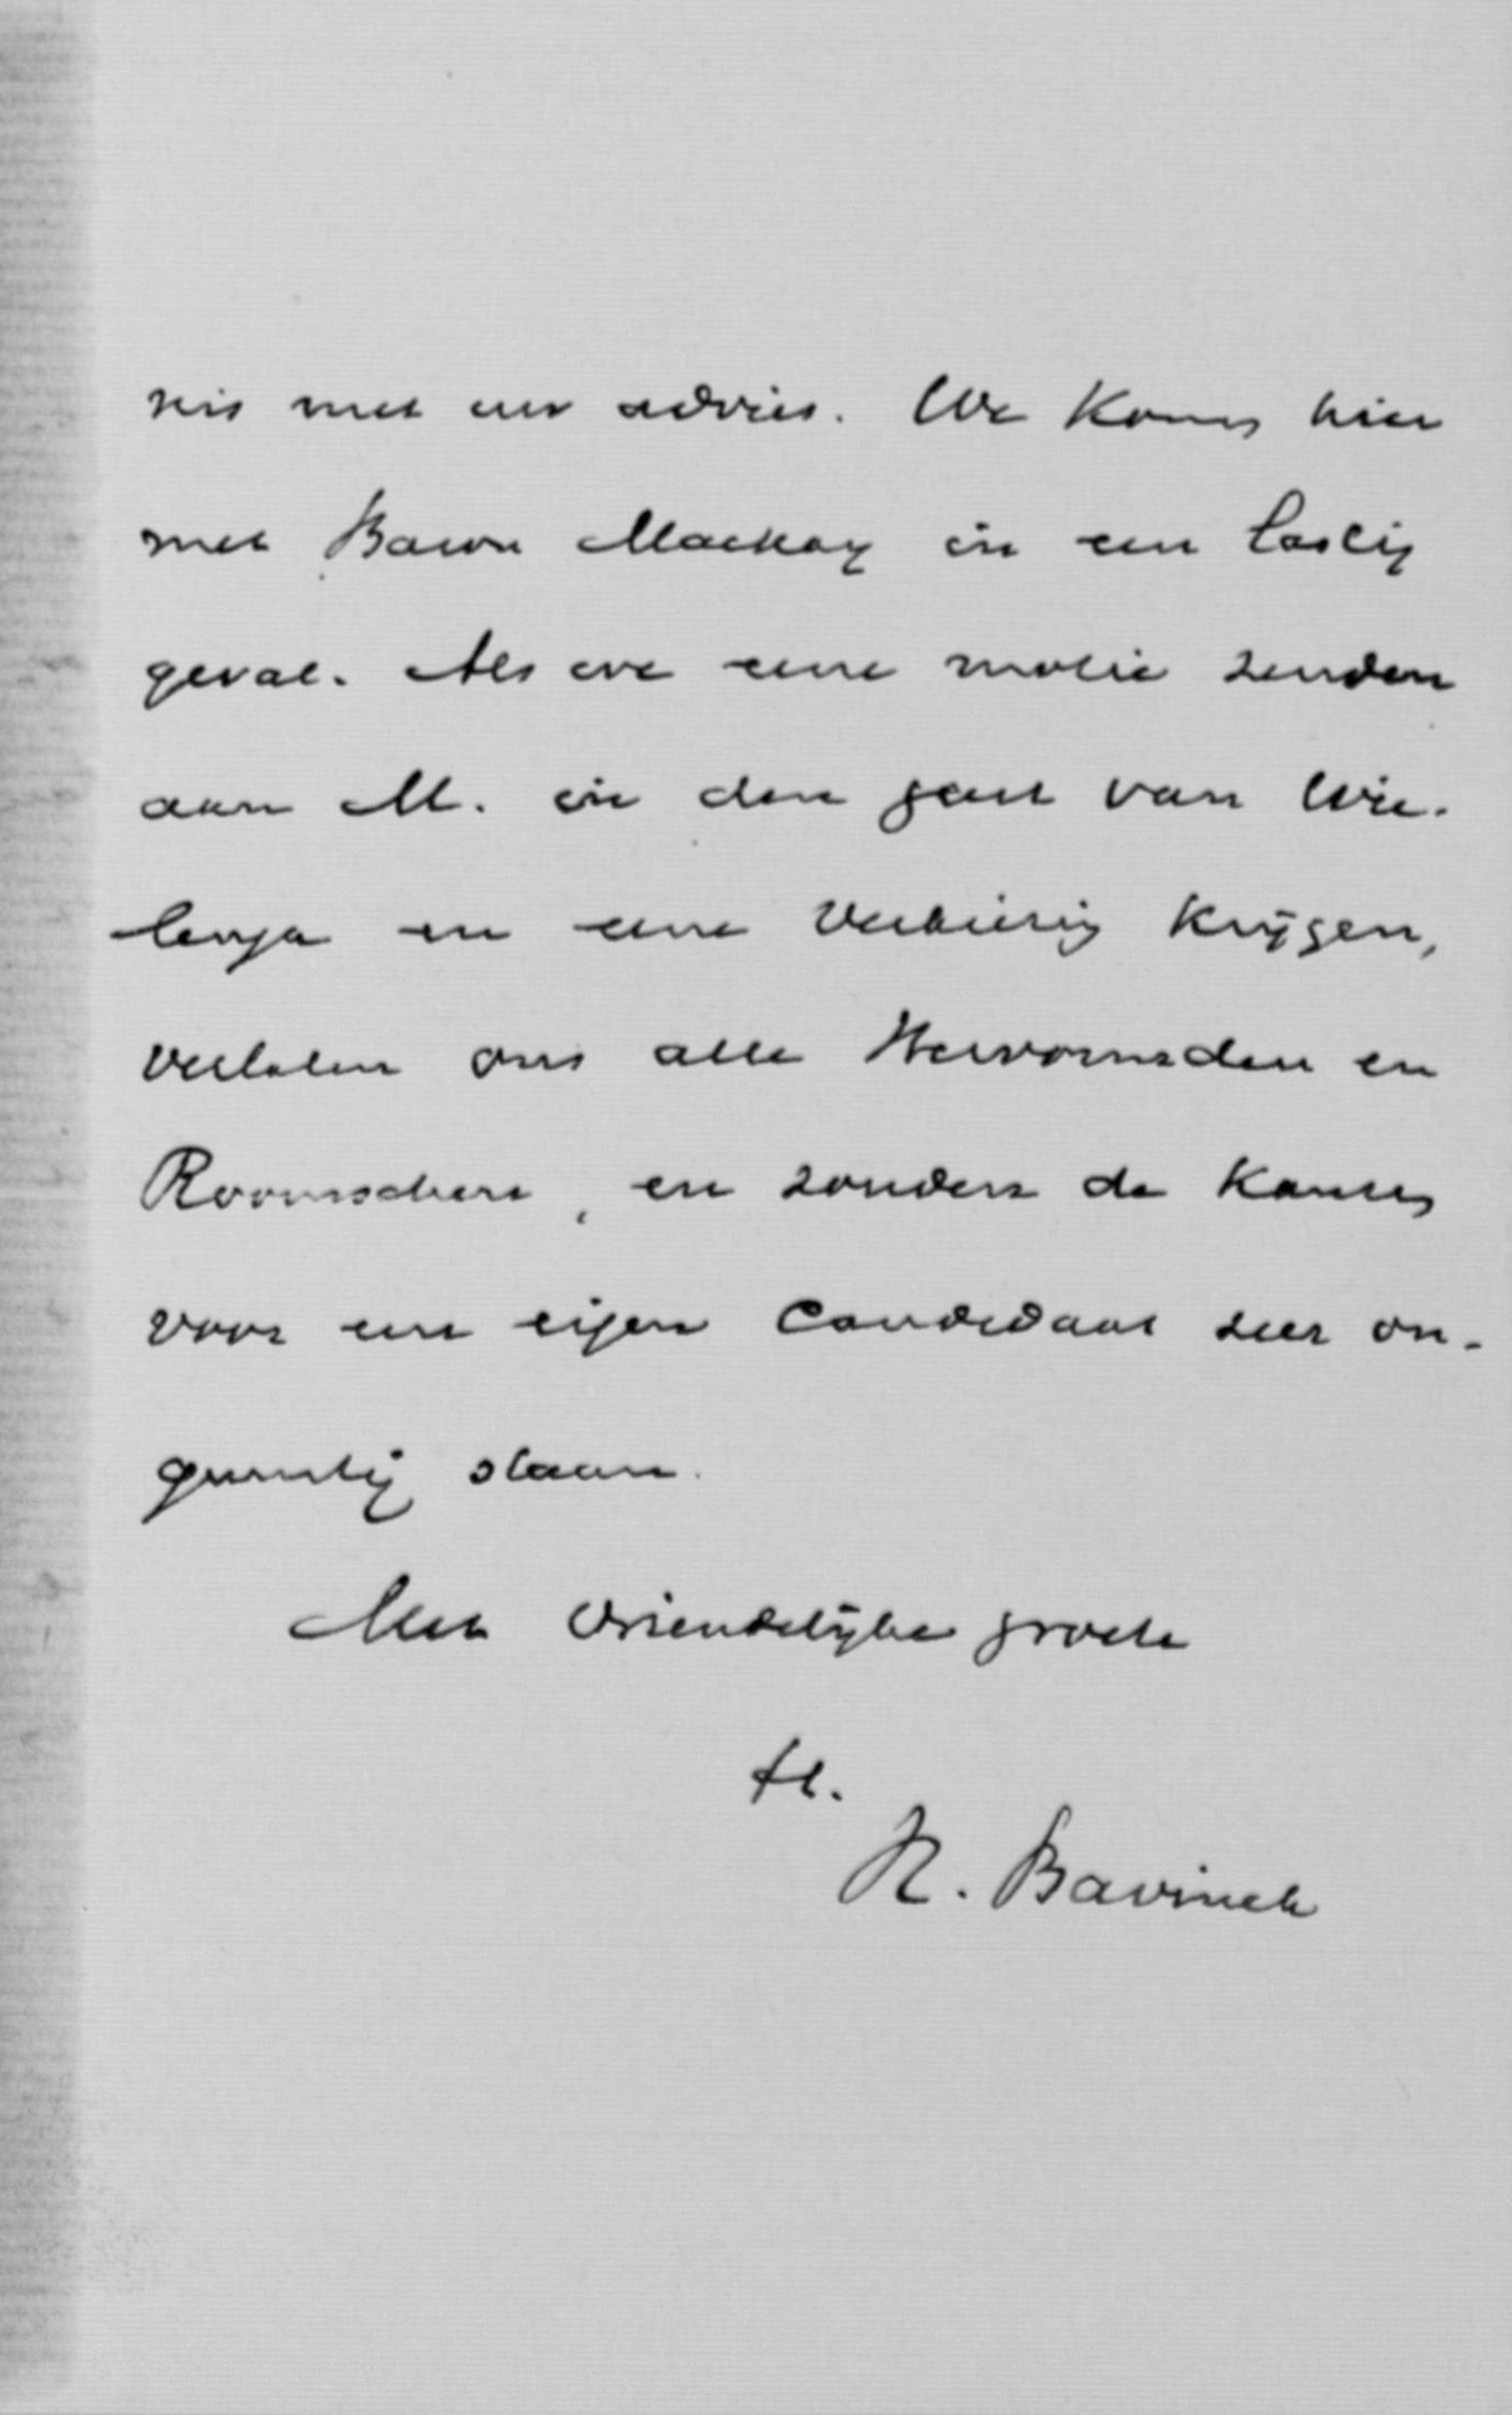 nis met uw advies. We komen hier
met Baron Mackay in een lastig
geval. Als we eene motie zenden
aan M. in den geest van Wie-
lenga en eene verkiezing krijgen,
verlaten ons alle Hervormden en
Roomschen, en zouden de kansen
voor een eigen candidaat zeer on-
gunstig staan.
Met vriendelijke groete
tt.
H. Bavinck